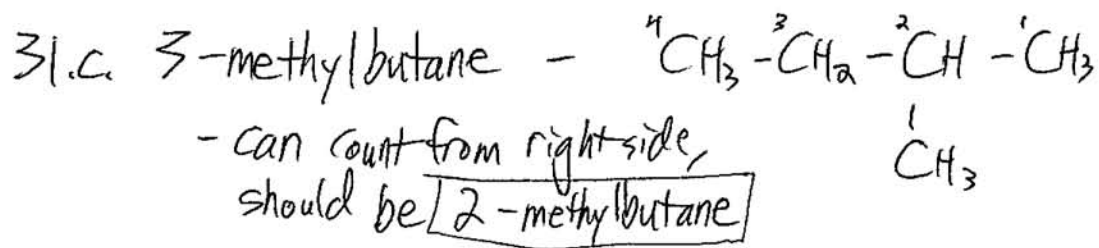 31.c. 3-methylbutane - ⁴CH₃-³CH₂-²CH-¹CH₃
|
CH₃
- can count from right side,
should be 2-methylbutane